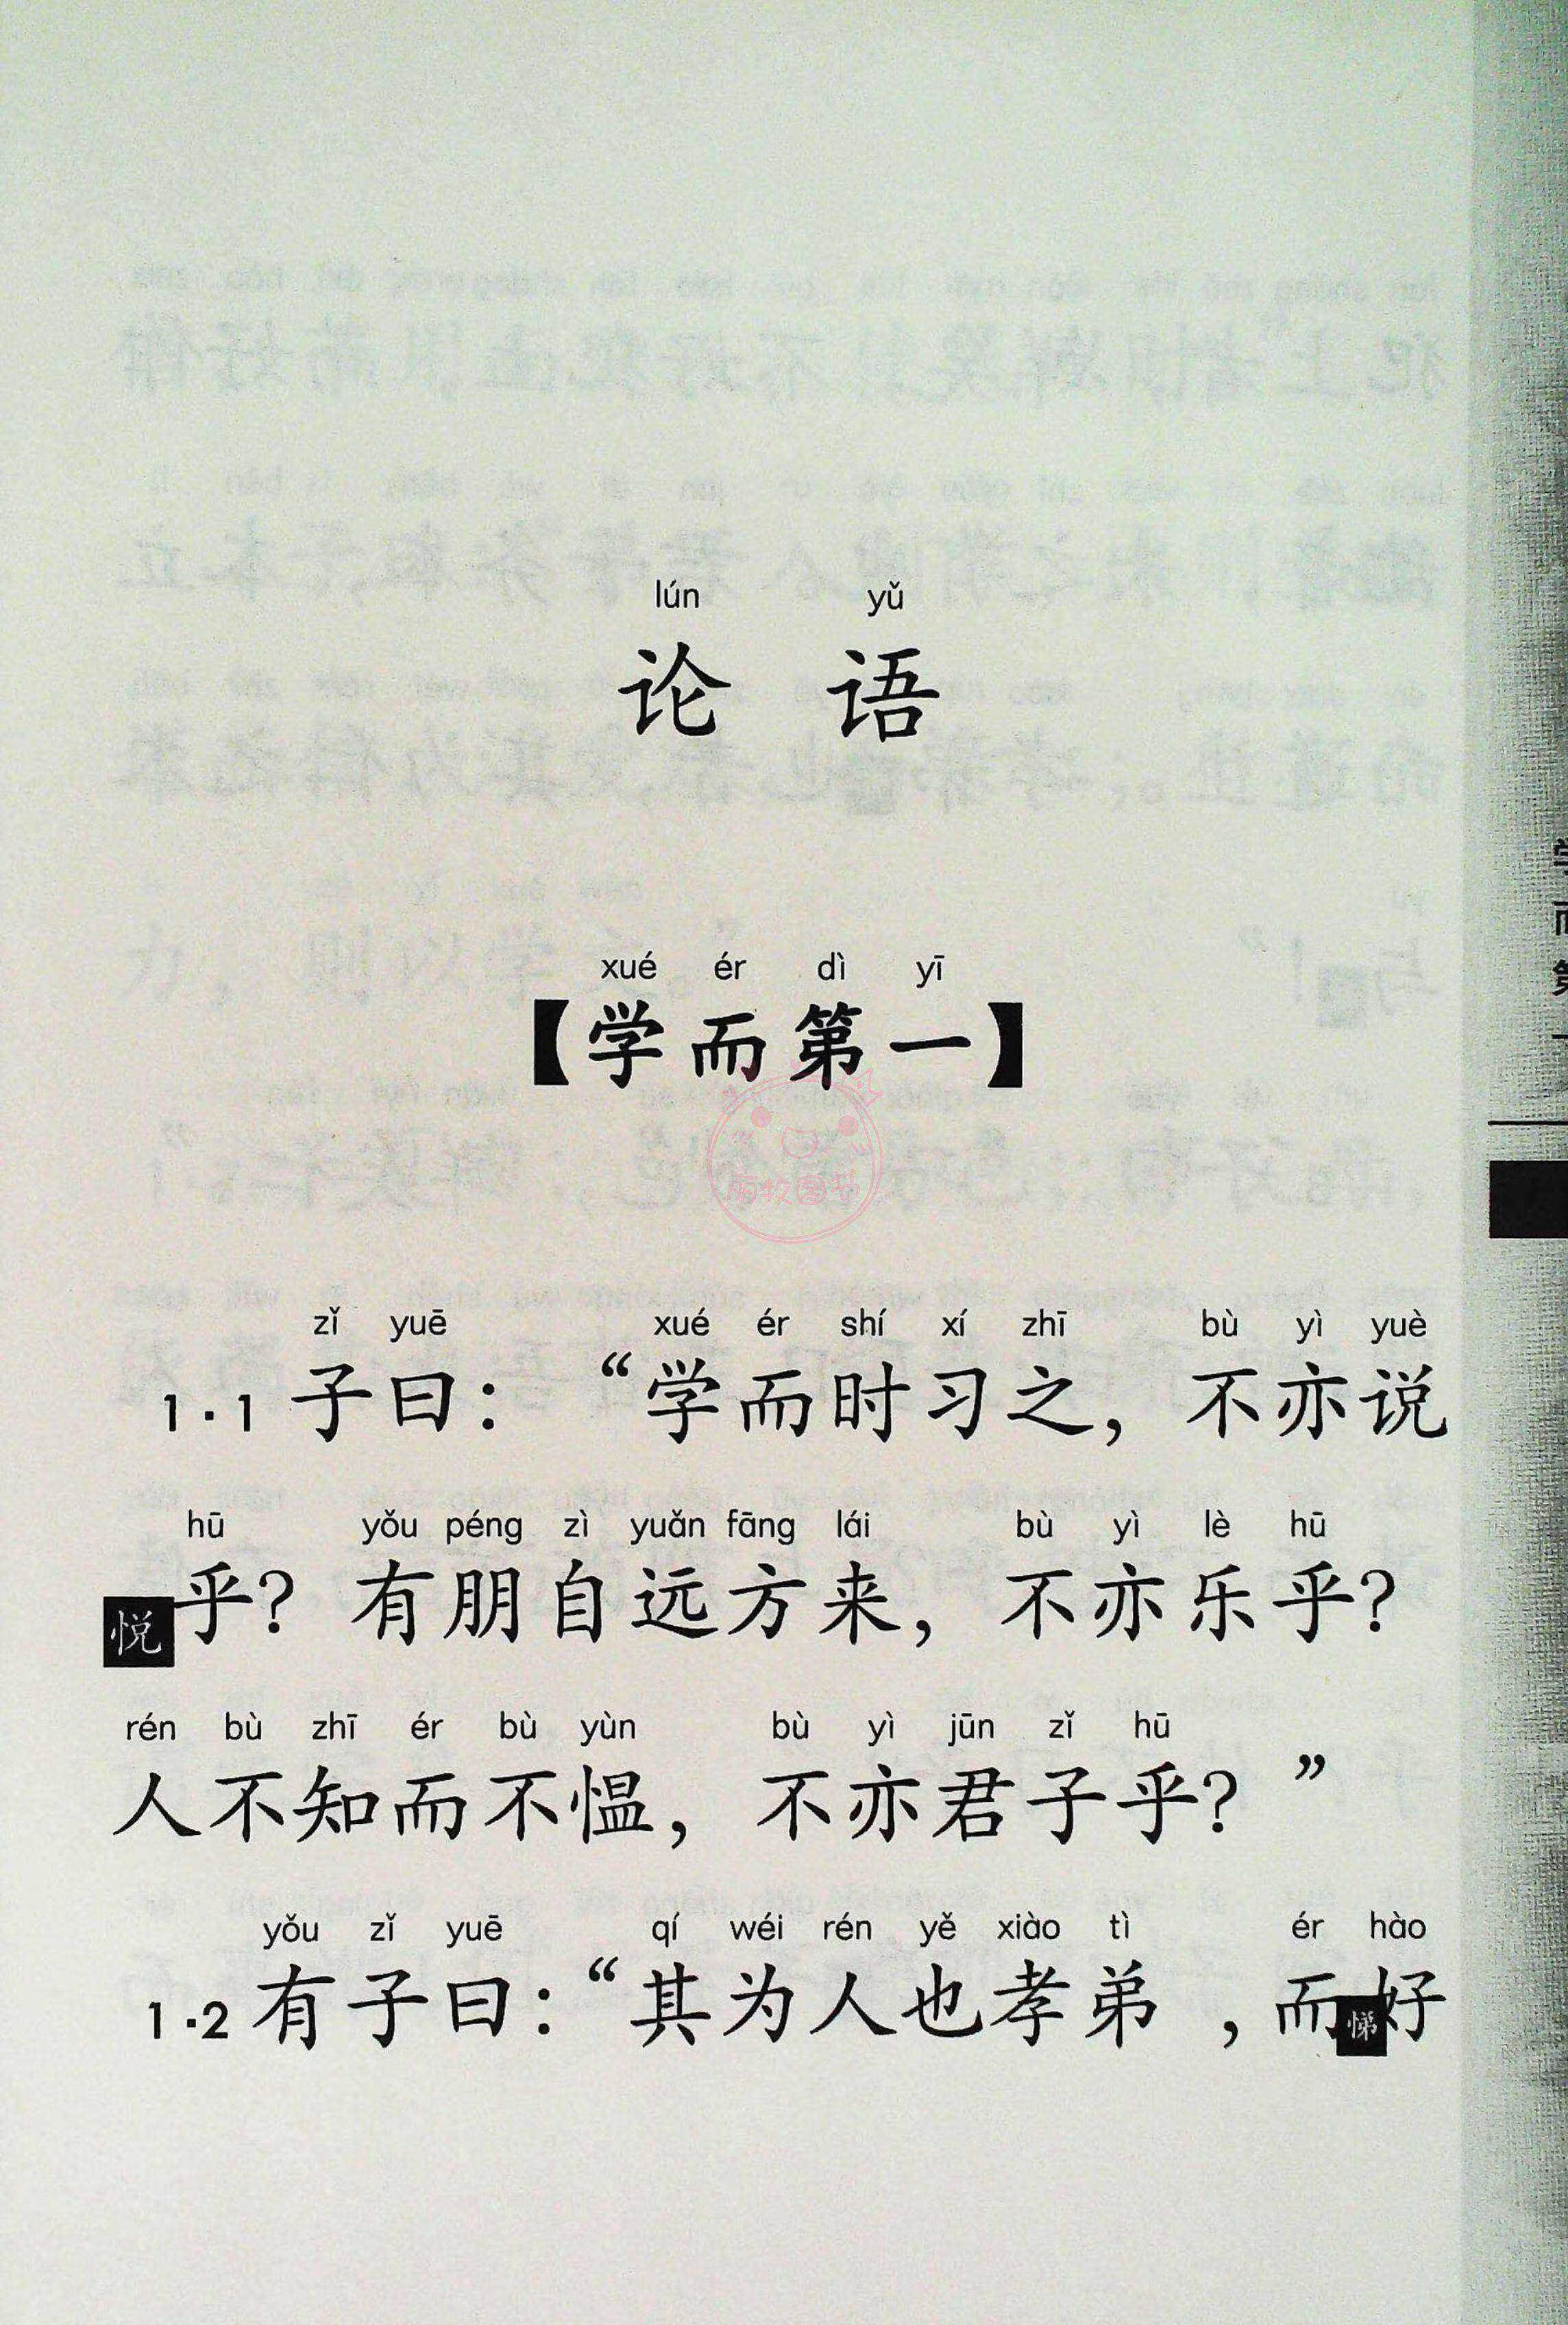 lún yǔ
论 语
xué ér dì yī
【学而第一】
zǐ yuē xué ér shí xí zhī bù yì yuè
1·1 子曰：“学而时习之，不亦说
hū yǒu péng zì yuǎn fāng lái bù yì lè hū
悦 乎？有朋自远方来，不亦乐乎？
rén bù zhī ér bù yùn bù yì jūn zǐ hū
人不知而不愠，不亦君子乎？”
yǒu zǐ yuē qí wéi rén yě xiào tì ér hào
1·2 有子曰：“其为人也孝弟，而 悌 好